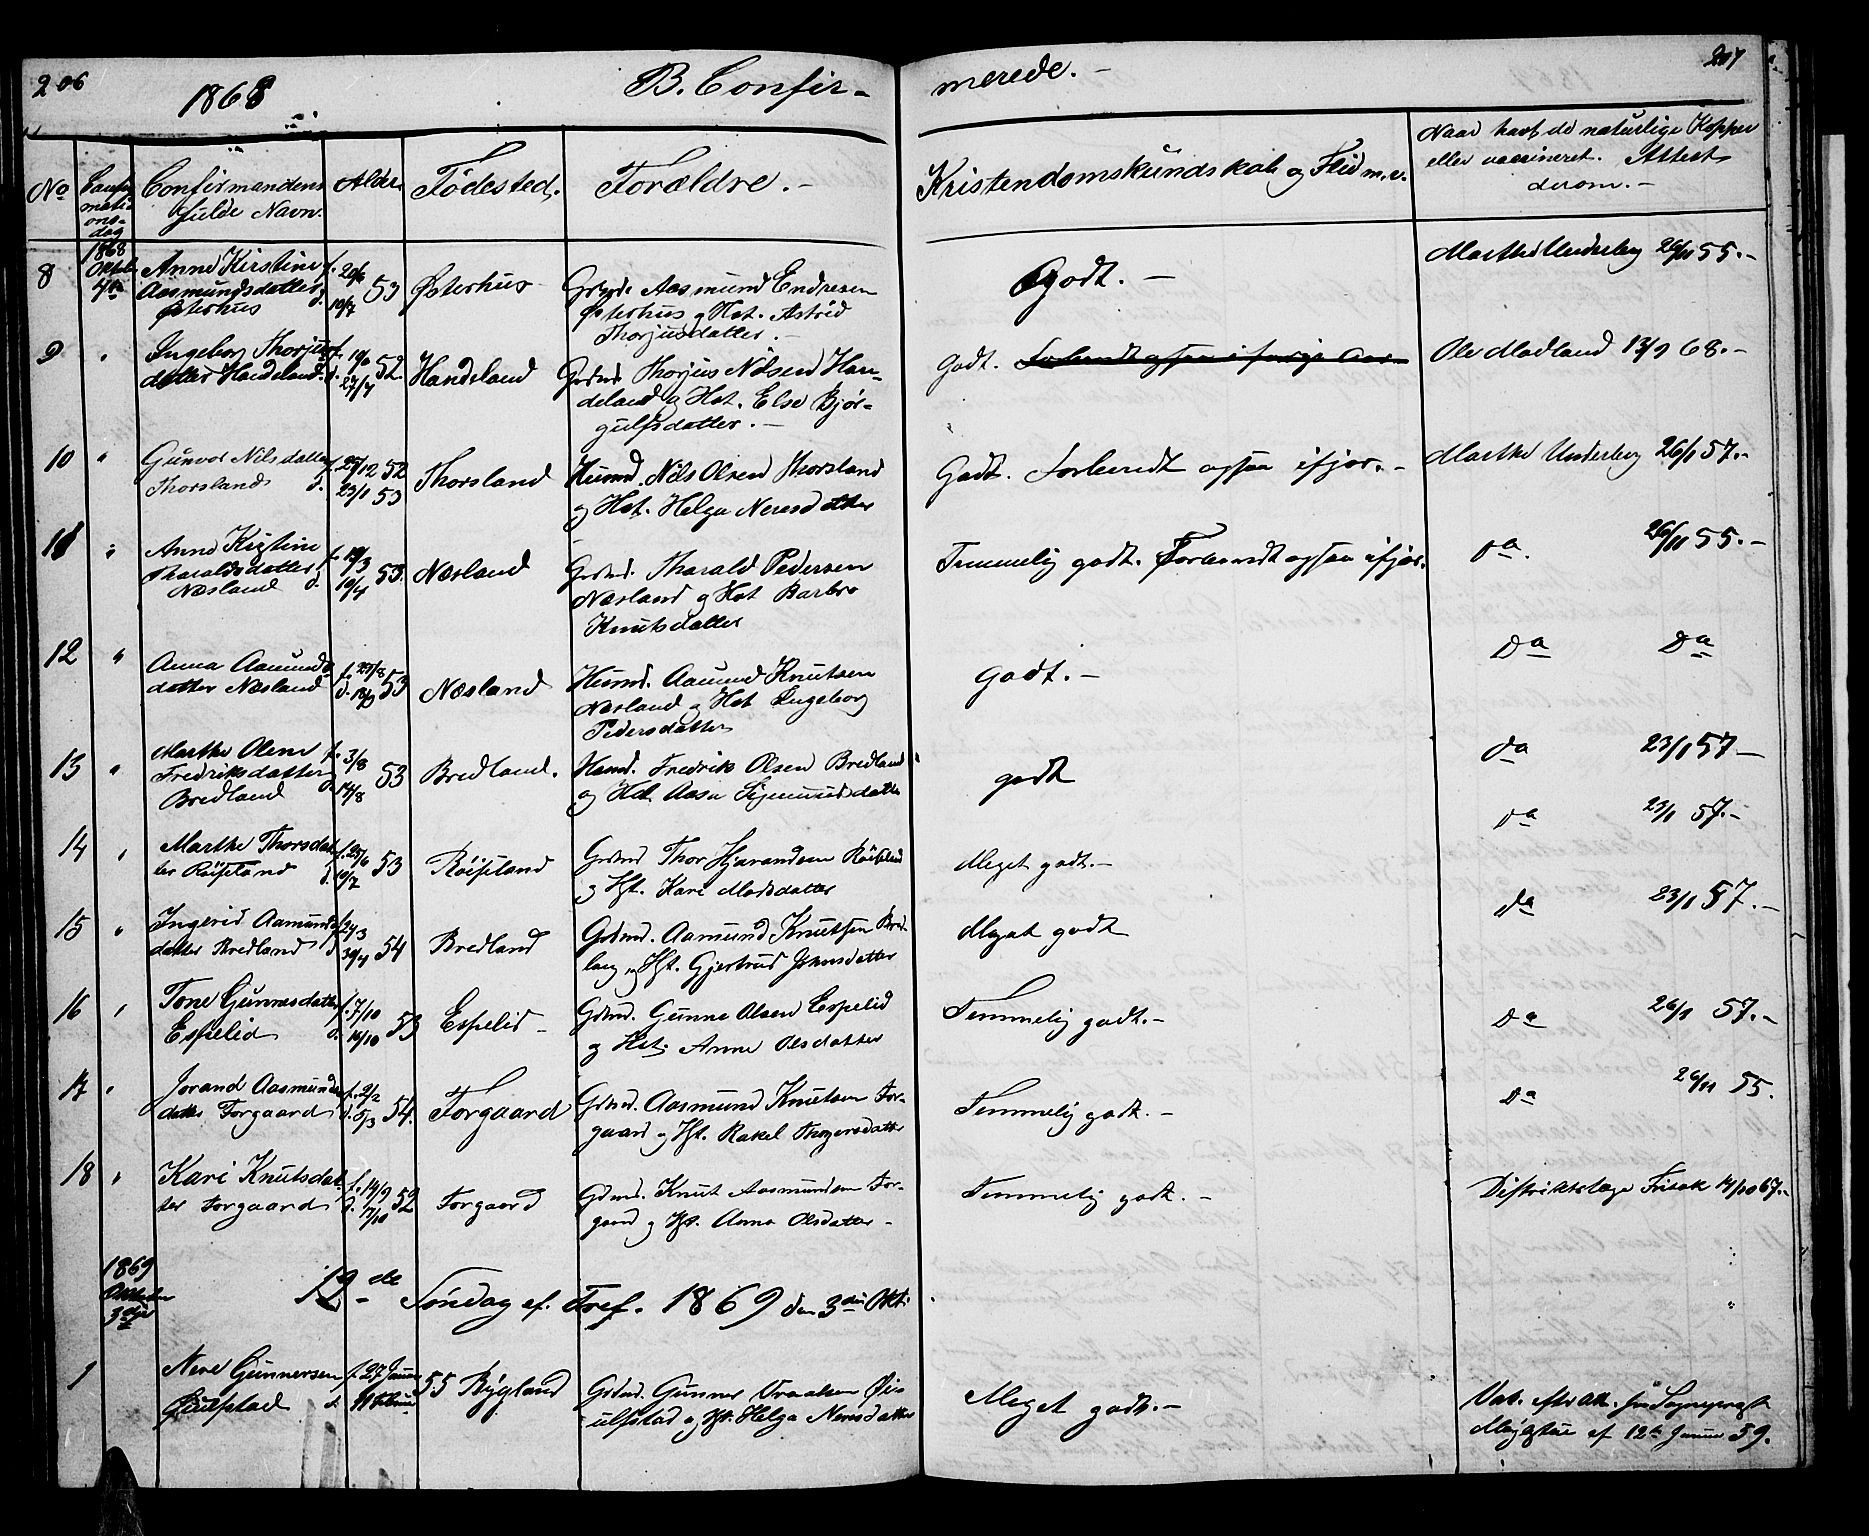 206
1868
B. Confir-
merede. -
207
No
Confirmandens
fulde Navn.
Alder
Fødested.
Forældre. -
Kristendomskundskab og Flid m.v.
Naar havt de naturlige Kopper
eller vaccineret. Attest
derom. -
8
1868
Anne Kirstine
Aasmundsdatter
Østerhus
f.
d.
53
Østerhus
Grbmd. Aasmund Endresen
Østerhus og Hst. Astrid
Thorjusdatter. -
Godt. -
Marthe Underberg 26/11 55. -
9
"
Ingeborg Thorjus-
datter Handeland.
d. 27/7
52
Handeland
Grdmd. Thorjus Nilsen Han-
deland og Hst. Else Bjør-
gulfsdatter. -
Godt.
Ole Madland 13/9 68. -
10
"
Gunvor Nilsdatter
Thorsland
f. 25/12 52
d. 23/1 53
Thorsland
Huusmd. Nils Olsen Thorsland
og Hst. Helga Neresdatter
Godt. Forberedt ogsaa ifjor. -
Marthe Underberg 26/1 57. -
11
"
Anne Kirstine
Tharaldsdatter
Næsland
d. 10/4
53.
Næsland
Grdmd. Tharald Pedersen
Næsland og Hst Barbro
Knutsdatter
Temmelig godt. Forberedt ogsaa ifjor.
Da.
26/11 55. -
12
"
Anna Aamunds-
datter Næsland
f. 23/8
53
Næsland
Husmd. Aamund Knutsen
Næsland og Hst Ingeborg
Pedersdatter
Godt. -
Da
Da
13
"
Marthe Olene
Fredriksdatter
Bredland
f. 3/8
d. 14/8
53
Bredland.
Husmd. Fredrik Olsen Bredland
og Hst. Aasa Sigmundsdatter
godt
Da
23/1 57 -
14
"
Marthe Thorsdat-
ter Røisland
f. 25/6
d. 10/7
53
Røisland
Grdmd. Thor Hjærandsen Røisland
og Hst. Kari Madsdatter
Meget godt. -
Da
23/1 57. -
15
"
Ingerid Aamunds-
datter Bredland
f. 24/3
d. 30/4
54
Bredland
Grdmd. Aamund Knutsen Bred-
land og Hst. Gjertrud Johnsdatter
Meget godt
Da
23/1 57. -
16
"
Tone Gunnesdatter
Espelid
f. 7/10
d. 16/10
53
Espelid -
Grdmd. Gunne Olsen Espelid
og Hst. Anne Olsdatter
Temmelig godt. -
Da
26/1 57. -
17
"
Jorand Aasmunds-
datter Forgaard
f. 2/2
d. 5/3
54.
Forgaard
Grdmd. Aasmund Knutsen For-
gaard og Hst. Rakel Thorgersdatter
Temmelig godt. -
Da
26/11 55.
18
"
Kari Knutsdat-
ter Forgaard
f. 14/9
d. 7/10
52
Forgaard
Grdmd. Knut Aasmundsen For-
gaard og Hst. Anna Olsdatter -
Temmelig godt. -
Distriktslæge Frisak 14/10 67. -
1869
Oktober
3die
19de Søndag ef. Tref. 1869 den 3die Okt.
1
Nere Gunnersen
f. 27 Januar
d. 11 Februar
55
Bygland
Grdmd. Gunner Øi-
ulfstad og Hst. Helga Neresdatter
Meget godt. -
Vak. efter Att. fra Sognepræst
af 12te Januar 59.